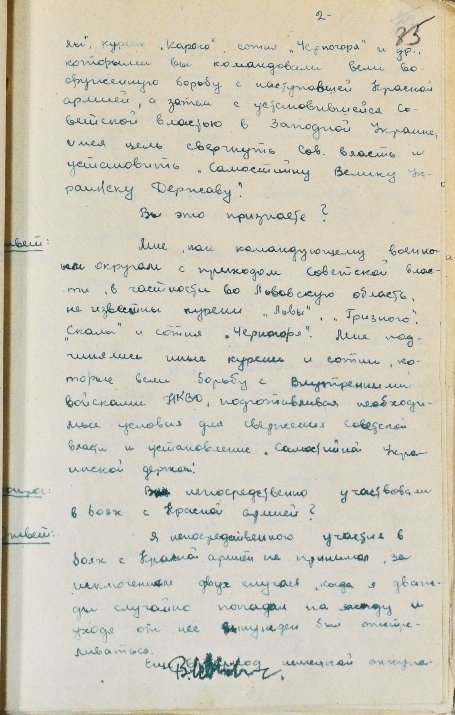 2-
35
лы", курень "Карого", сотня "Черногора" и др.,
которыми вы командовали вели во-
оруженную борьбу с наступавшей Красной
армией, а затем с установившейся Со-
ветской властью в Западной Украине,
имея цель свергнуть Сов. власть и
установить "Самостійну Велику Ук-
раинску Державу".
Вы это признаете?
Ответ: Мне, как командующему военно-
ым округом с приходом советской влас-
ти, в частности во Львовскую область,
не известны курени "Львы", "Гризного",
"Скалы" и сотня "Черногоря". Мне под-
чинялись иные курени и сотни, ко-
торые вели борьбу с Внутренними
войсками НКВД, подготавливая необходи-
мые условия для свержения советской
власти и установление "Самостійной Укра-
инской держави".
Вопрос: Вы непосредственно участвовали
в боях с Красной армией?
Ответ: Я непосредственного участия в
боях с Красной армией не принимал, за
исключением двух случаев, когда я дваж-
ды случайно попадал на засаду и
уходя от нее вынужден был отстре-
ливаться.
Еще в период немецкой оккупа-